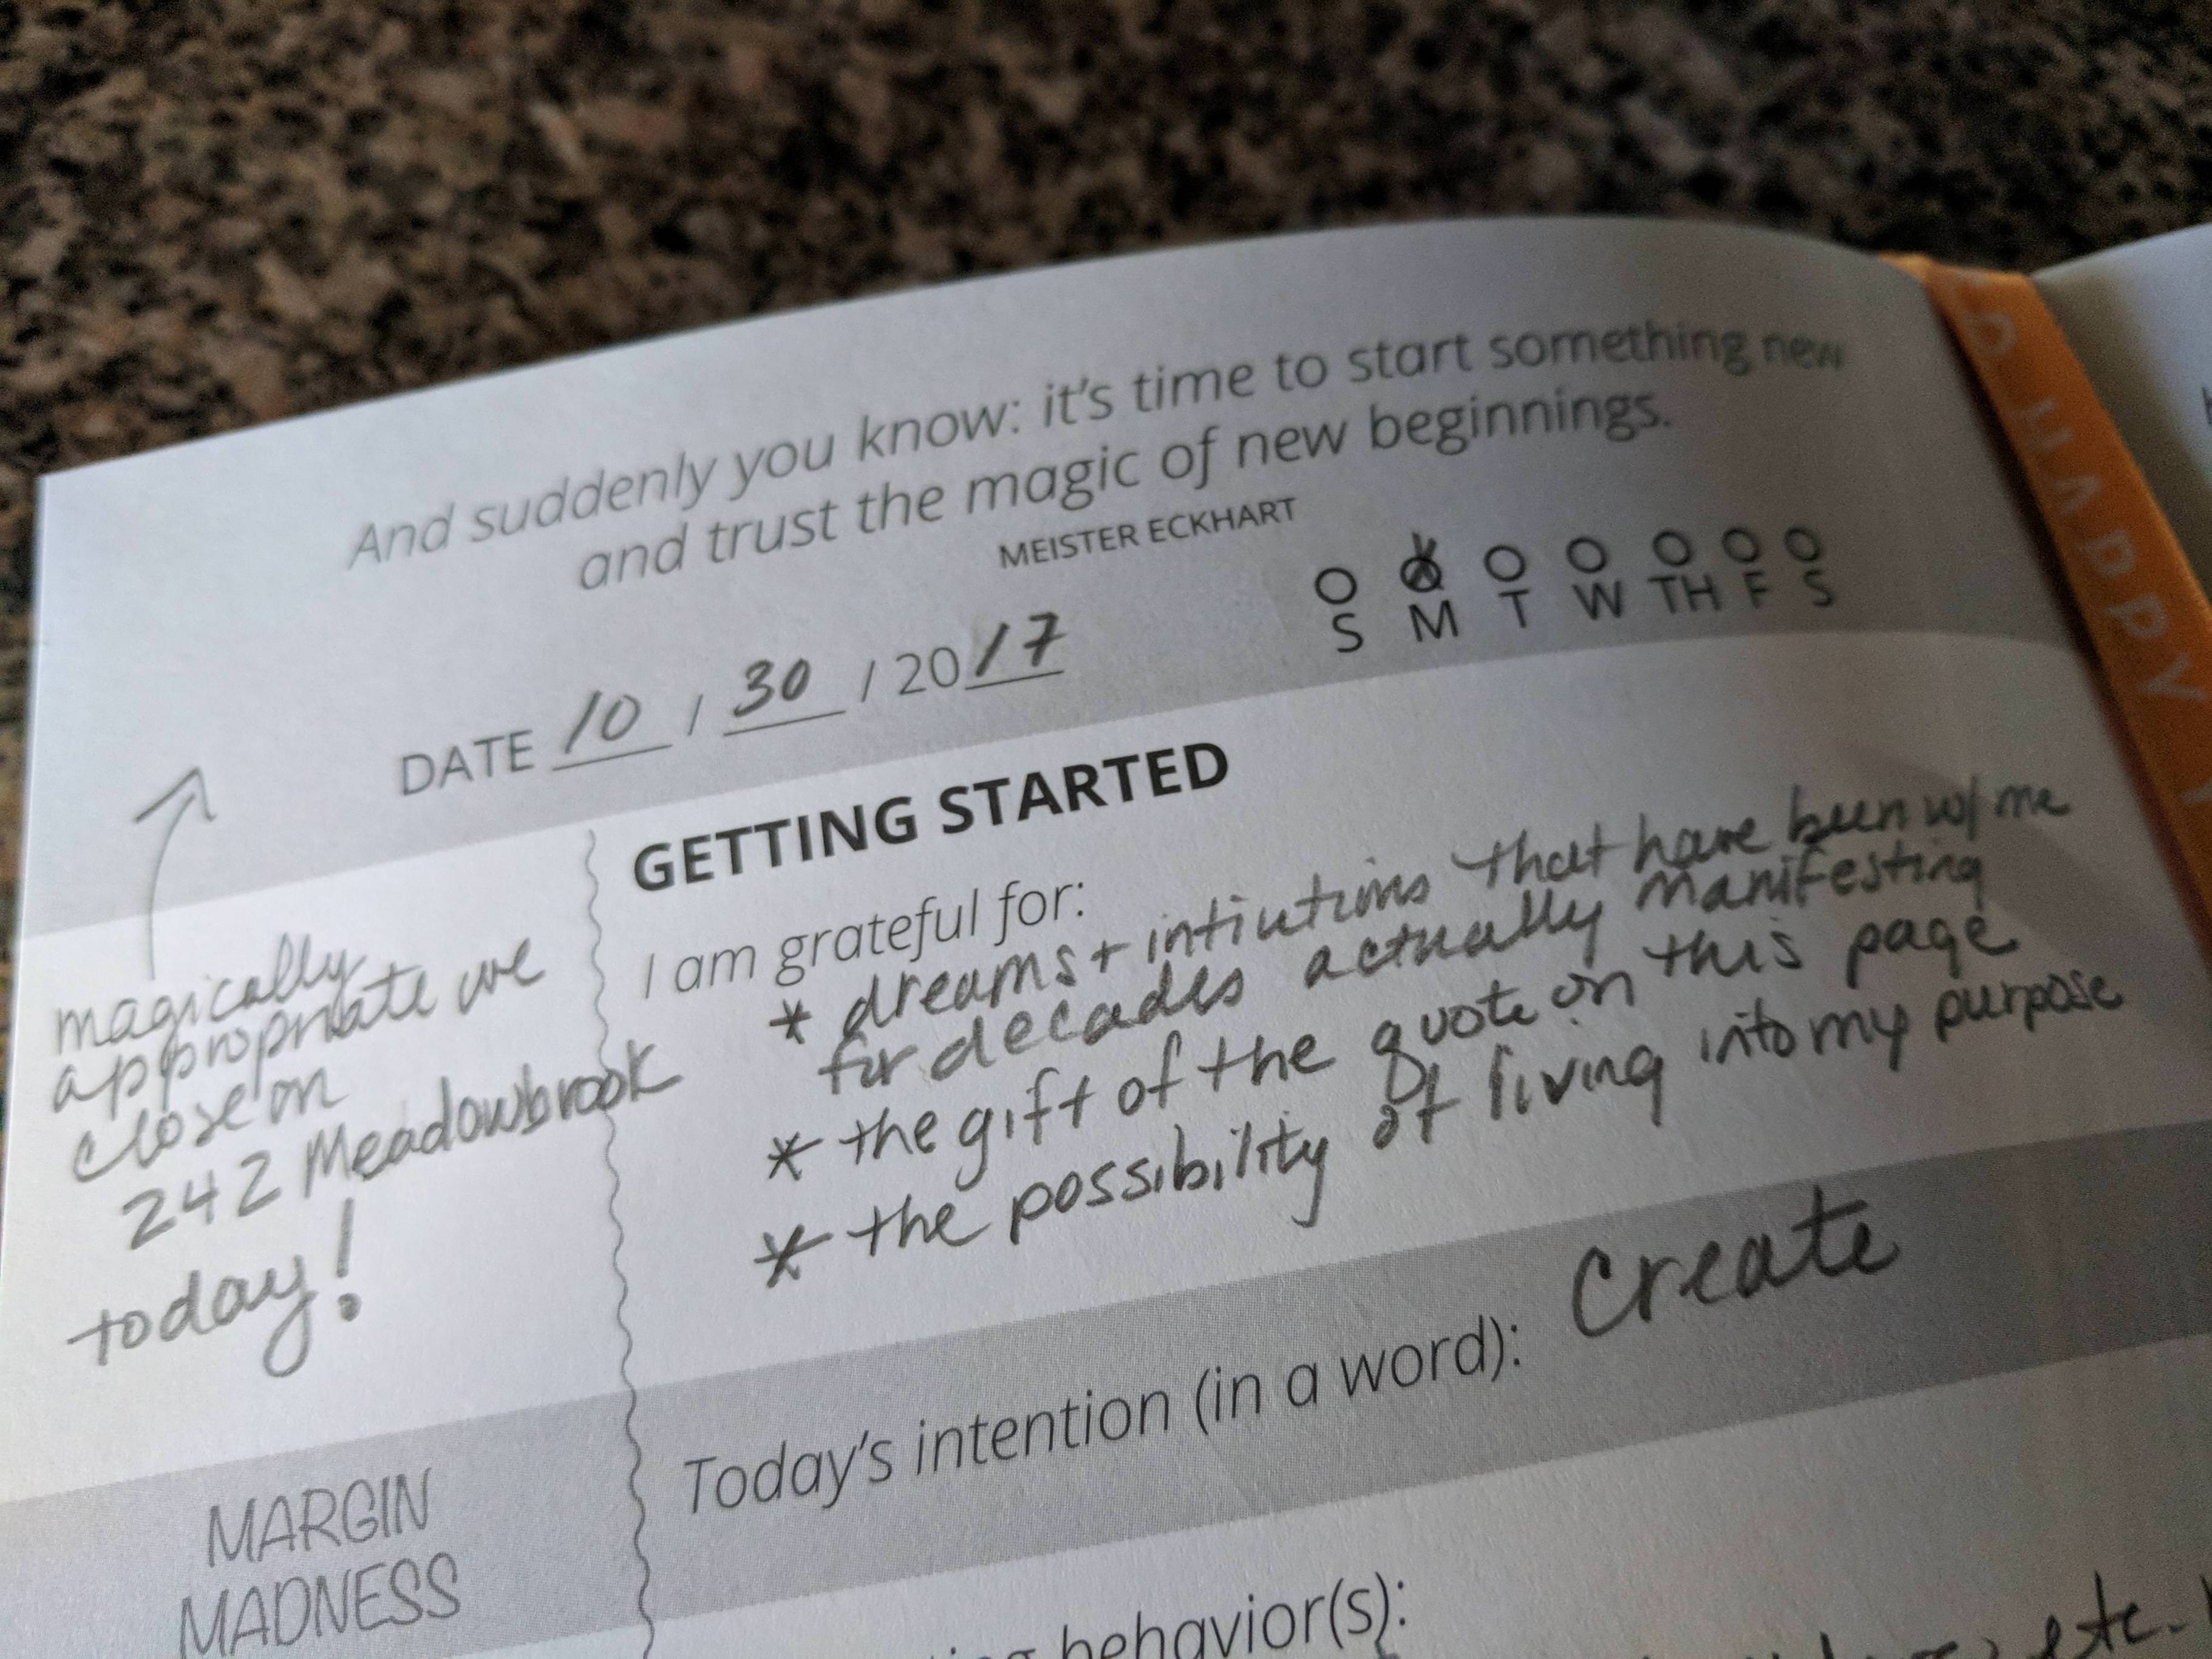 And suddenly you know: it's time to start something new
and trust the magic of new beginnings.
MEISTER ECKHART
DATE 10 / 30 / 2017
S M T W TH F S
GETTING STARTED
I am grateful for:
* dreams + intiutions that have been w/ me
for decades actually manifesting
* the gift of the quote on this page
* the possibility of living into my purpose
magically
appropriate we
close on
242 Meadowbrook
today!
Today's intention (in a word): Create
MARGIN
MADNESS
behavior(s):
etc.
HAPPY